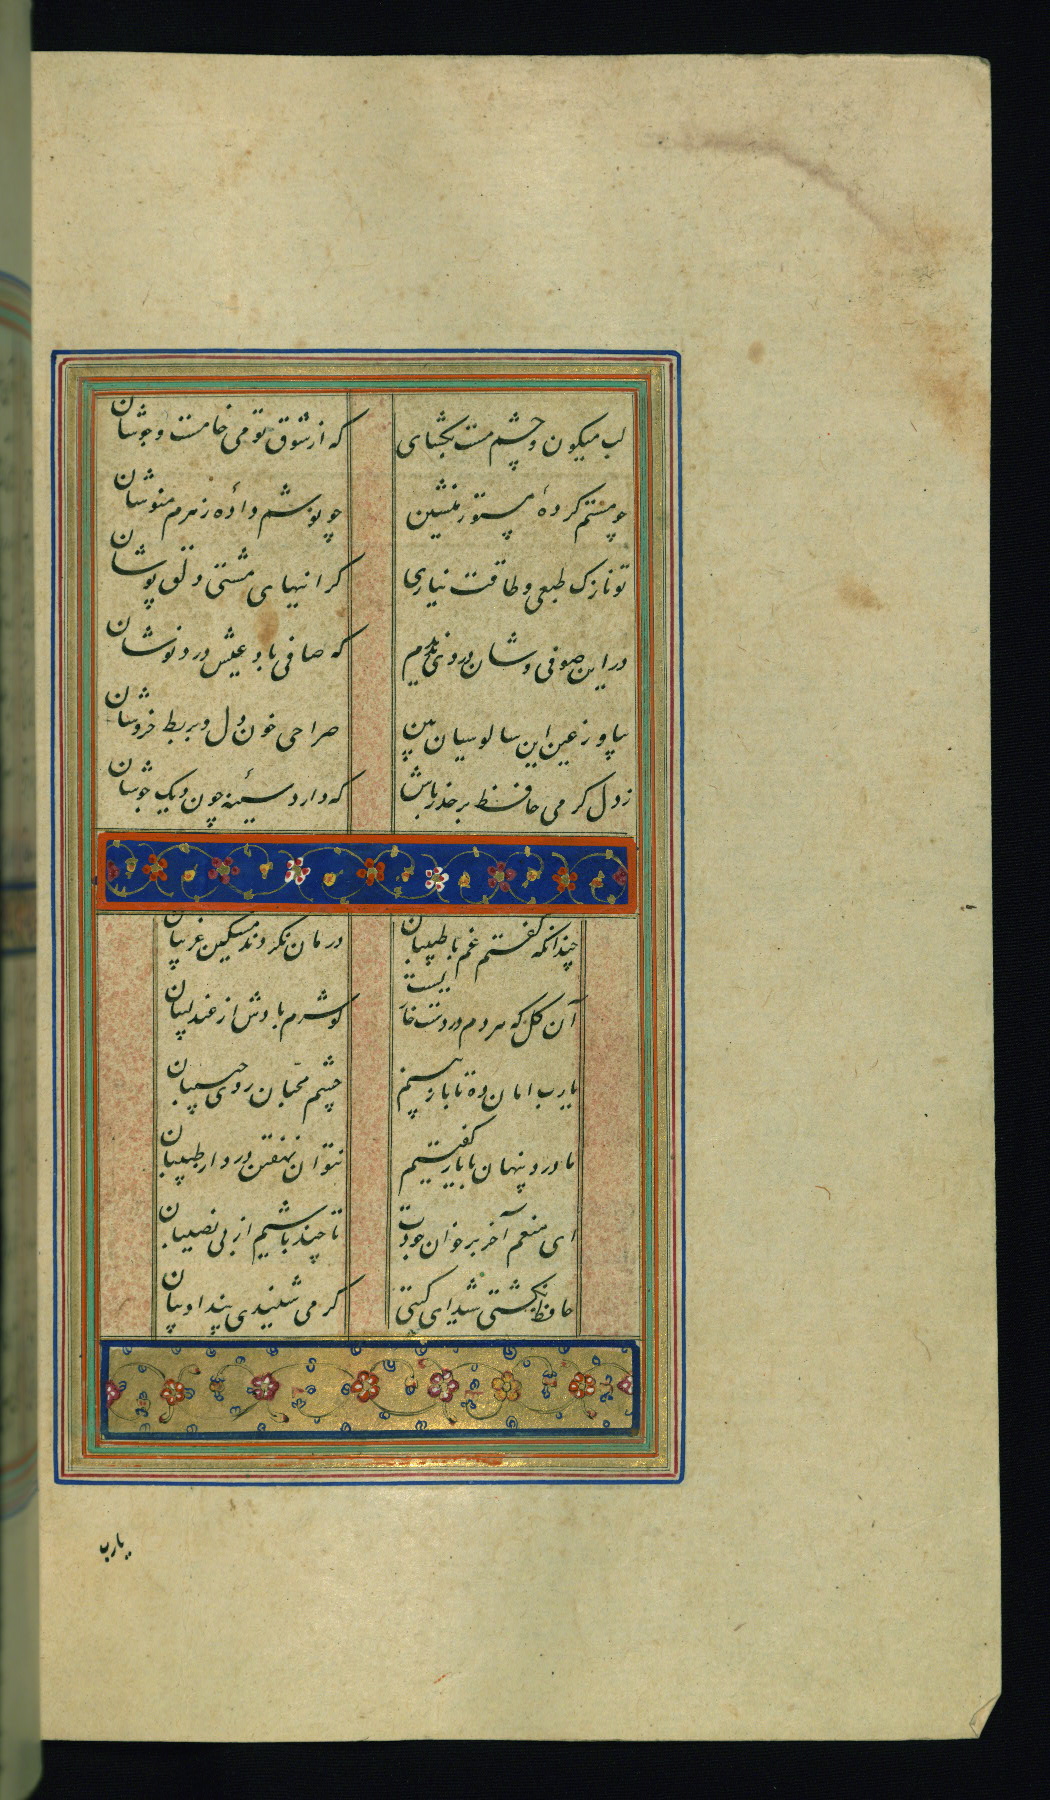 لب میکون و چشم مست بکشای که از شوق تو می خامست و جوشان
چو مستم کردهٔ مستور منشین چو نوشم دادهٔ زهرم منوشان
تو نازک طبعی و طاقت نیاری کرانیهای مشتی دلق پوشان
در این صوفی وشان دردی ندیدم که صافی باد عیش درد نوشان
بیا و زعین این سالوسیان بین صراحی خون دل و بربط خروشان
ز دل کرمی حافظ بر حذر باش که دارد سینهٔ چون دیک جوشان
چندانکه کفتم غم با طبیبان درمان نکردند مسکین غریبان
آن کل که هر دم در دست خاریست کو شرم بادش از عندلیبان
یا رب امان ده تا باز بیند چشم محبان روی حبیبان
ما درد پنهان با یار کفتیم نتوان نهفتن درد از طبیبان
ای منعم آخر بر خوان جودت تا چند باشیم از بی نصیبان
حافظ نکشتی شیدای کیتی کر می شنیدی پند ادیبان
یارب